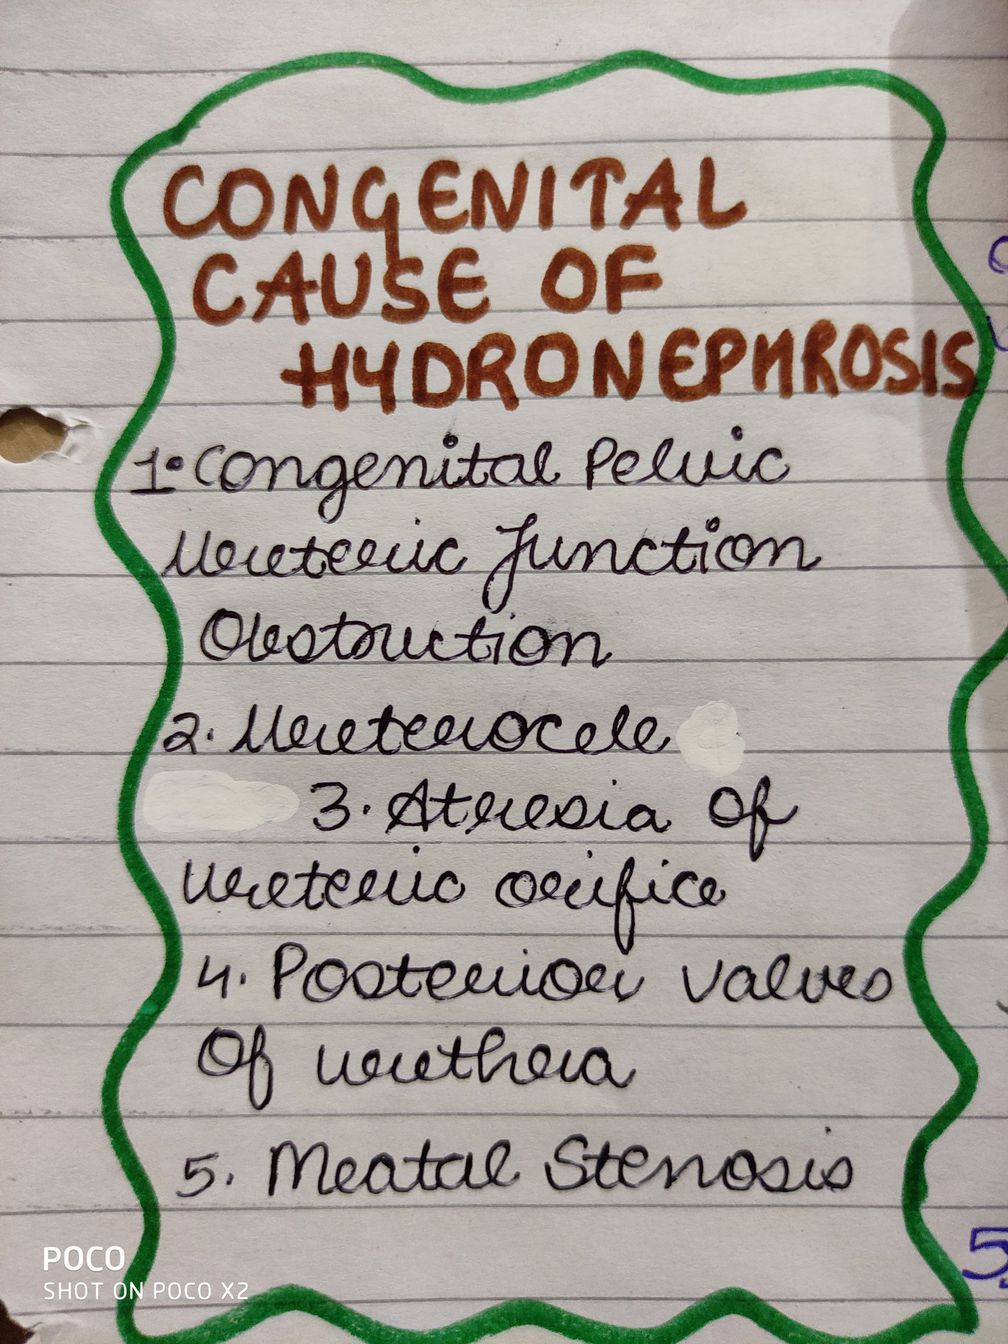 CONGENITAL
CAUSE OF
HYDRONEPHROSIS
1. Congenital Pelvic
Ureteric Junction
Obstruction
2. Ureterocele
3. Atresia Of
Ureteric orifice
4. Posterior valves
Of urethera
5. Meatal Stenosis
5.
POCO
SHOT ON POCO X2